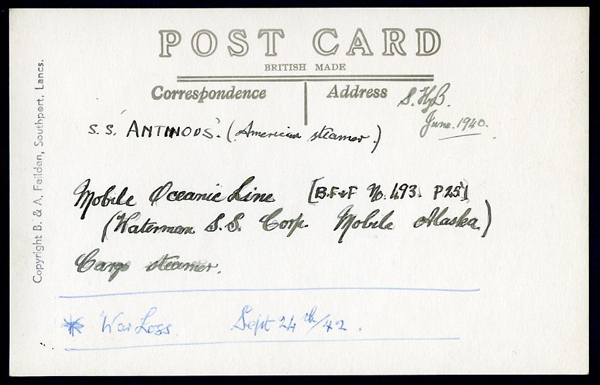 POST CARD
BRITISH MADE
Correspondence
Address
June. 1940.
S.S. 'ANTINOUS'. (American steamer.)
Mobile Oceanic Line [B.F&F No. 493. P25]
(Waterman S.S. Corp. Mobile Alaska)
Cargo steamer.
* War Loss. Sept 24th/42.
Copyright B. & A. Feilden, Southport, Lancs.